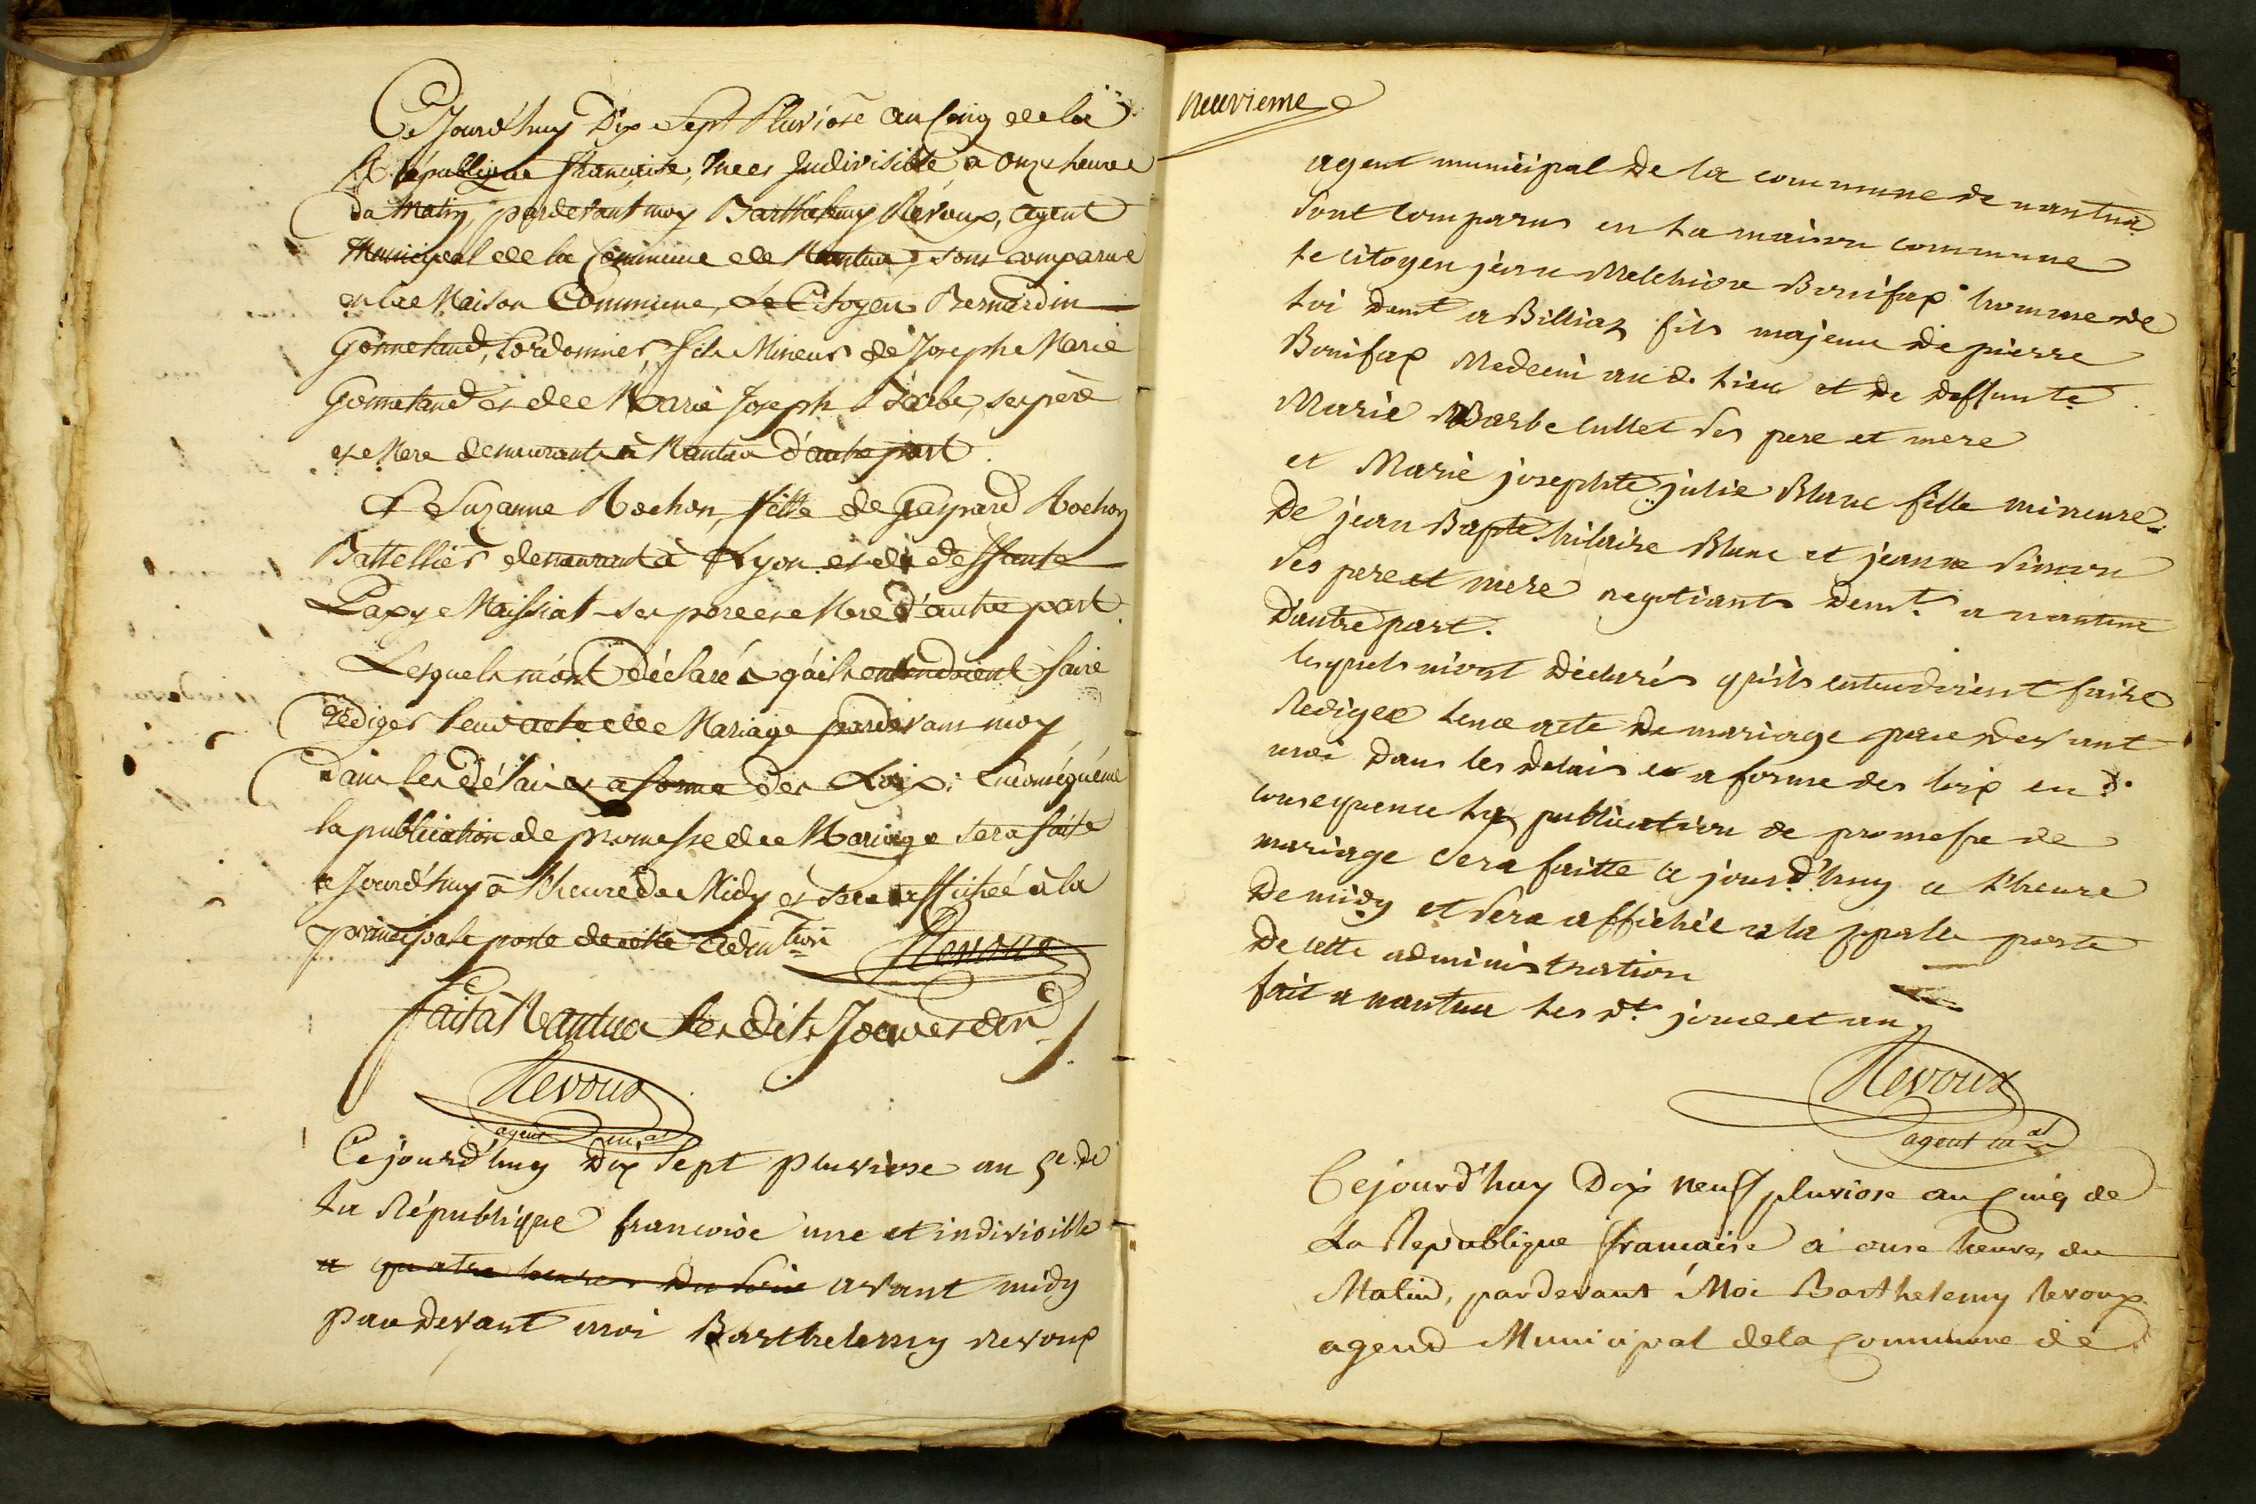 Ce Jourd'huy Dix Sept Pluviose an Cinq de la
République française, une et Indivisible à onze heure
du Matin, pardevant moy Barthelemy Révoux, agent
Municipal de la Commune de Nantua, sont comparue
en la Maison Commune, Le Citoyen Bernardin
Gonnetand, Cordonnier, fils Mineur de Joseph Marie
Gonnetand et de Marie Joseph Barbe, ses père
et Mere demeurants à Nantua d'autre part.
Et Suzanne Rochon, fille de Gaspard Rochon
Battellier demeurant à Lyon et de deffunte
Maissiat ses pere et Mere d'autre part.
Lesquels m'ont Déclarés qu'ils entendoient faire
Rédiger leur acte de Mariage pardevant moy
Dans les délais et a forme des Loix; Enconséquence
la publication de promesse de Mariage sera faite
ce Jourd'huy à l'heure de Midy et sera affichée à la
principale porte de cette adm.tion Revoux
fait à Nantua les dits Jour et an
Revoux
agent m.al
Cejourd'huy Dix Sept pluviose an 5e. de
La République francoise une et indivisible
a quatre heures du soir avant midy
Pardevant moi Barthelemy revoux
neuvieme
agent municipal De la commune de nantua
Sont Comparus en La maison commune
Le Citoyen jean Melchior Bonifax homme de
Loi demt a Billiaz fils majeur de pierre
Bonifax Medecin au d. Lieu et de deffunte
Marie Barbe Cullet Ses pere et mere
et Marie josephte julie Blanc fille mineure
De jean Bapte. hilaire Blanc et jeanne Simon
Ses pere et mere negotiants demt. a nantua
D'autre part.
Lesquels m'ont Déclarés qu'ils entendoient faire
Rediger Leur acte De mariage pardevant
moi Dans les Delais et a forme des loix en d.
consequence La publication de promesse de
mariage Sera faitte ce jourd'huy a l'heure
De midy et Sera affichée a la pple porte
De cette administration
fait a nantua Les dt. jour et an
Revoux
agent m.al
Cejourd'huy Dix neuf pluviose an Cinq de
La Republique francaise à onse heures du
Matin, pardevant Moi Barthelemy revoux
agend Municipal dela Commune de